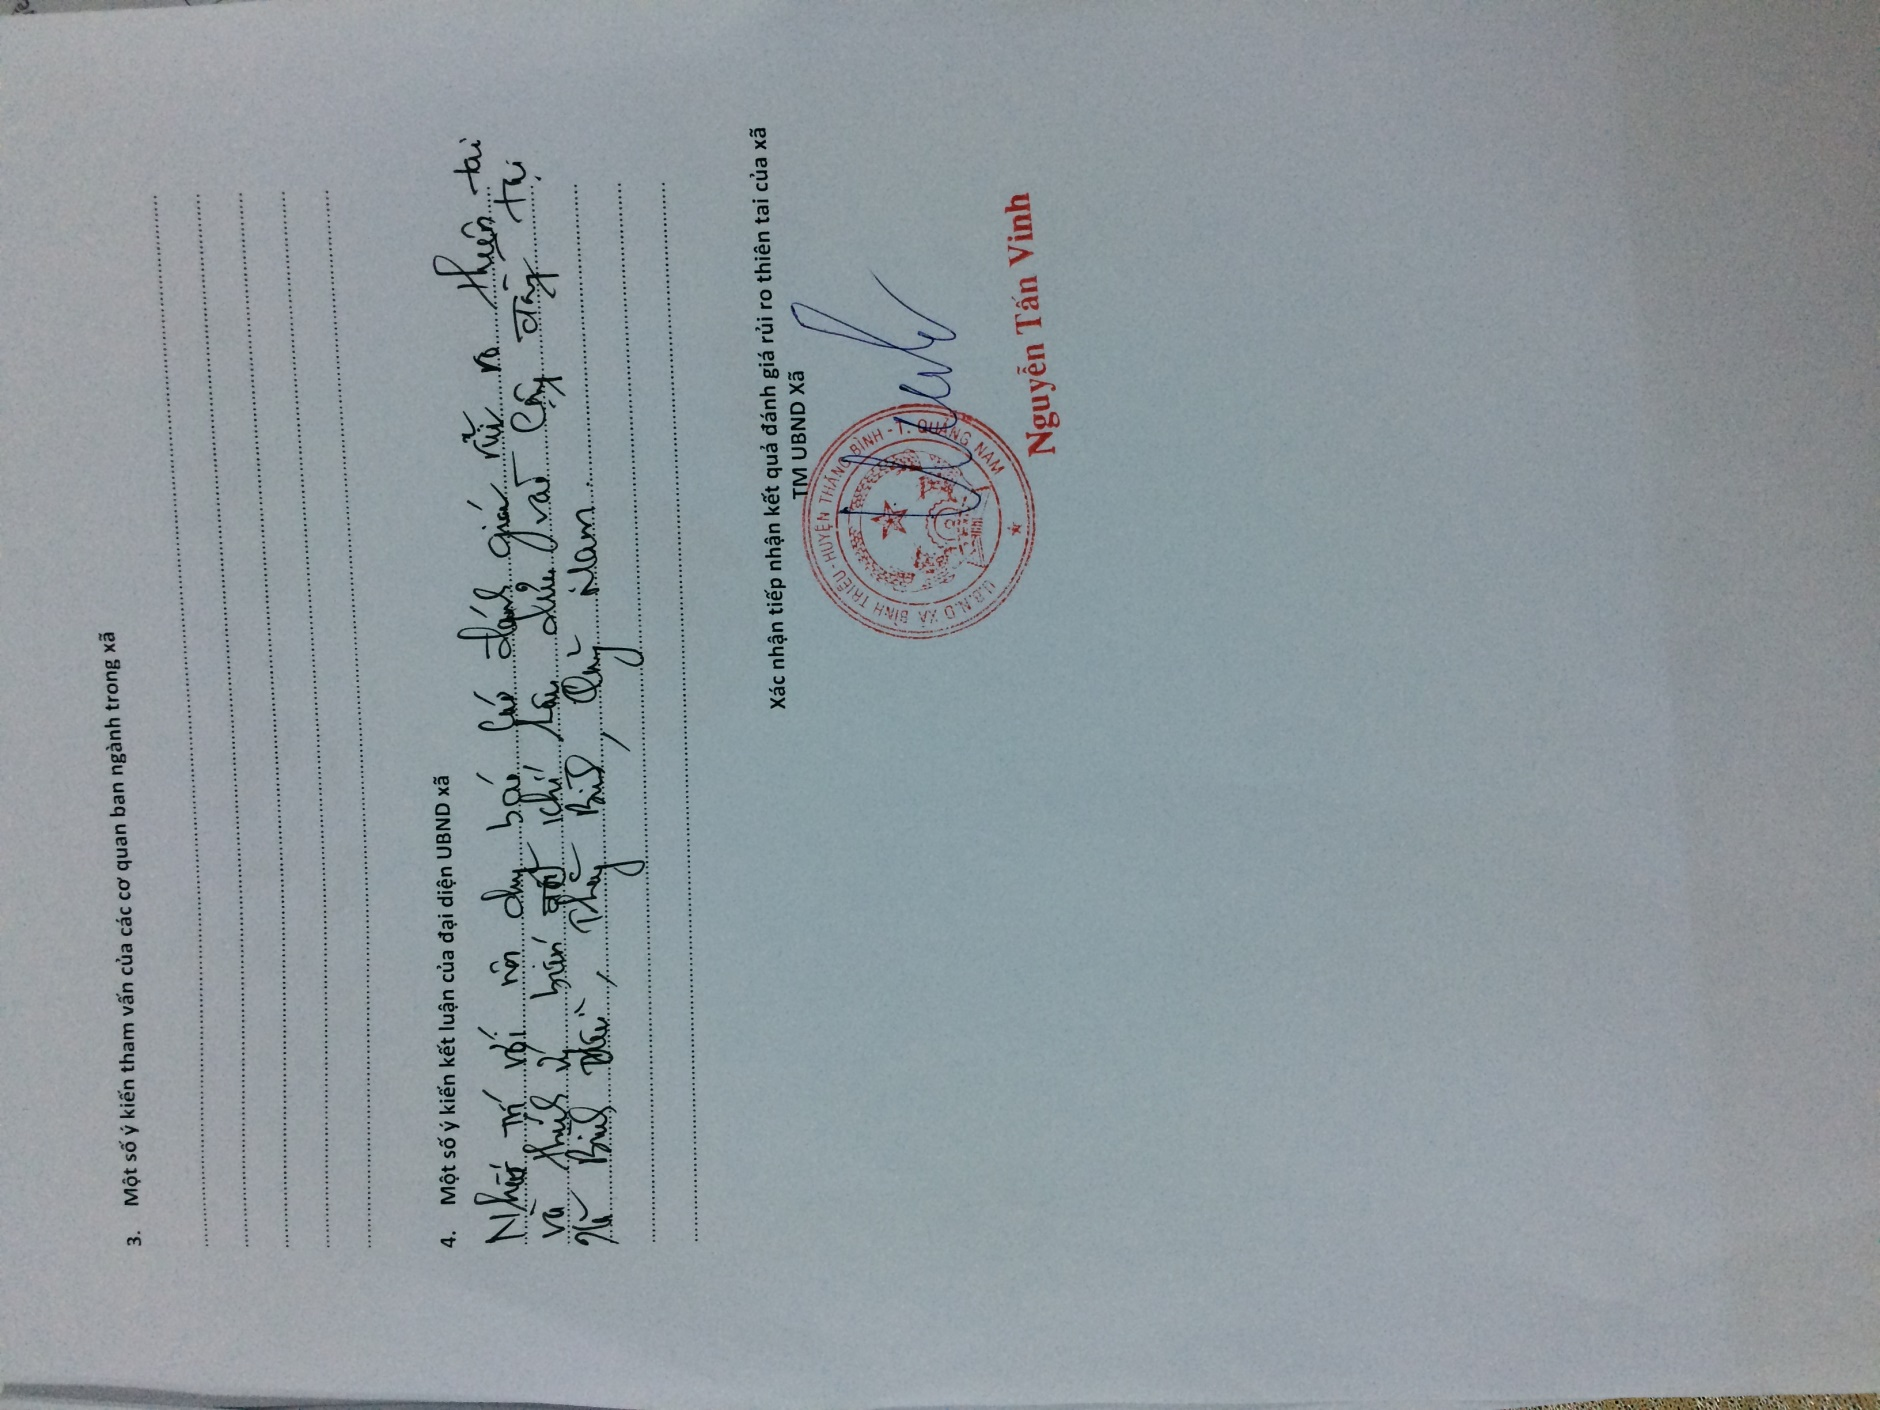 3. Một số ý kiến tham vấn của các cơ quan ban ngành trong xã
4. Một số ý kiến kết luận của đại diện UBND xã
Nhất trí với nội dung báo cáo đánh giá rủi ro thiên tai
và thích ứng biến đổi khí hậu dựa vào cộng đồng tại
xã Bình, Thăng Bình, Quảng Nam.
Xác nhận tiếp nhận kết quả đánh giá rủi ro thiên tai của xã
TM UBND Xã
U.B.N.D XÃ BÌNH TRIỀU - HUYỆN THĂNG BÌNH - T. QUẢNG NAM
Nguyễn Tấn Vinh